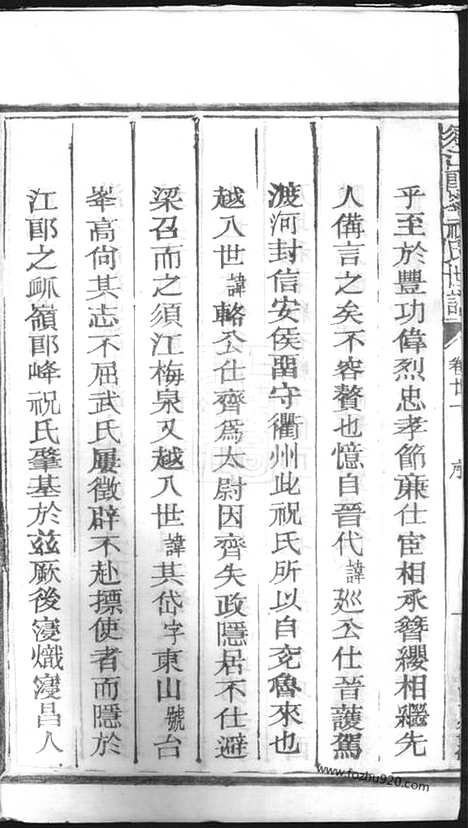 須江郎峯祝氏世譜 卷廿一 序 一
乎至於豐功偉烈忠孝節亷仕宦相承簪纓相繼先
人偹言之矣不容贅也憶自晉代諱廵公仕晉護駕
渡河封信安侯畱守衢州此祝氏所以自兖魯來也
越八世諱輅公仕齊爲太尉因齊失政隱居不仕避
梁召而之須江梅泉又越八世諱其岱字東山號台
峯高尙其志不屈武氏屢徵辟不赴摽使者而隱於
江郎之𠂢嶺郎峰祝氏肇基於兹厥後寖熾寖昌人
www.fozhu920.com